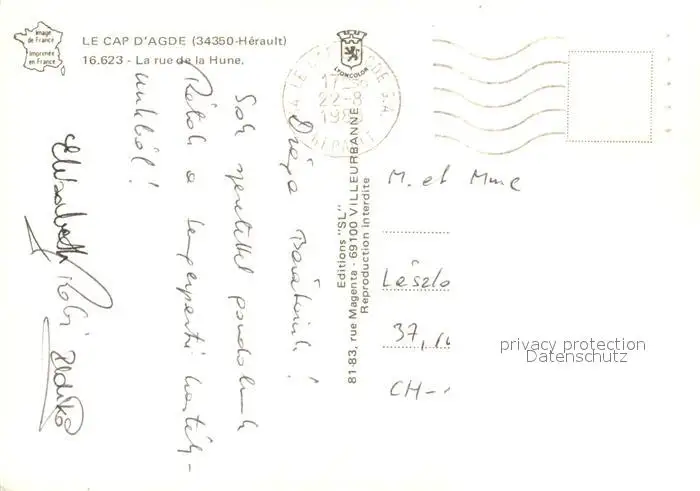 Image
de France
Imprimée
en France
LE CAP D'AGDE (34350-Hérault)
16.623 - La rue de la Hune.
LYONCOLOR
Drága Barátaink!
Sok szeretettel gondolunk
Rátok a tengerparti
unkból!
Elisabeth Robi Ildikó
Editions "SL"
81-83, rue Magenta - 69100 VILLEURBANNE
Reproduction interdite
LE CAP D'AGDE P.A.
22-8
M. et Mme
László
37, ru
CH-
privacy protection
Datenschutz